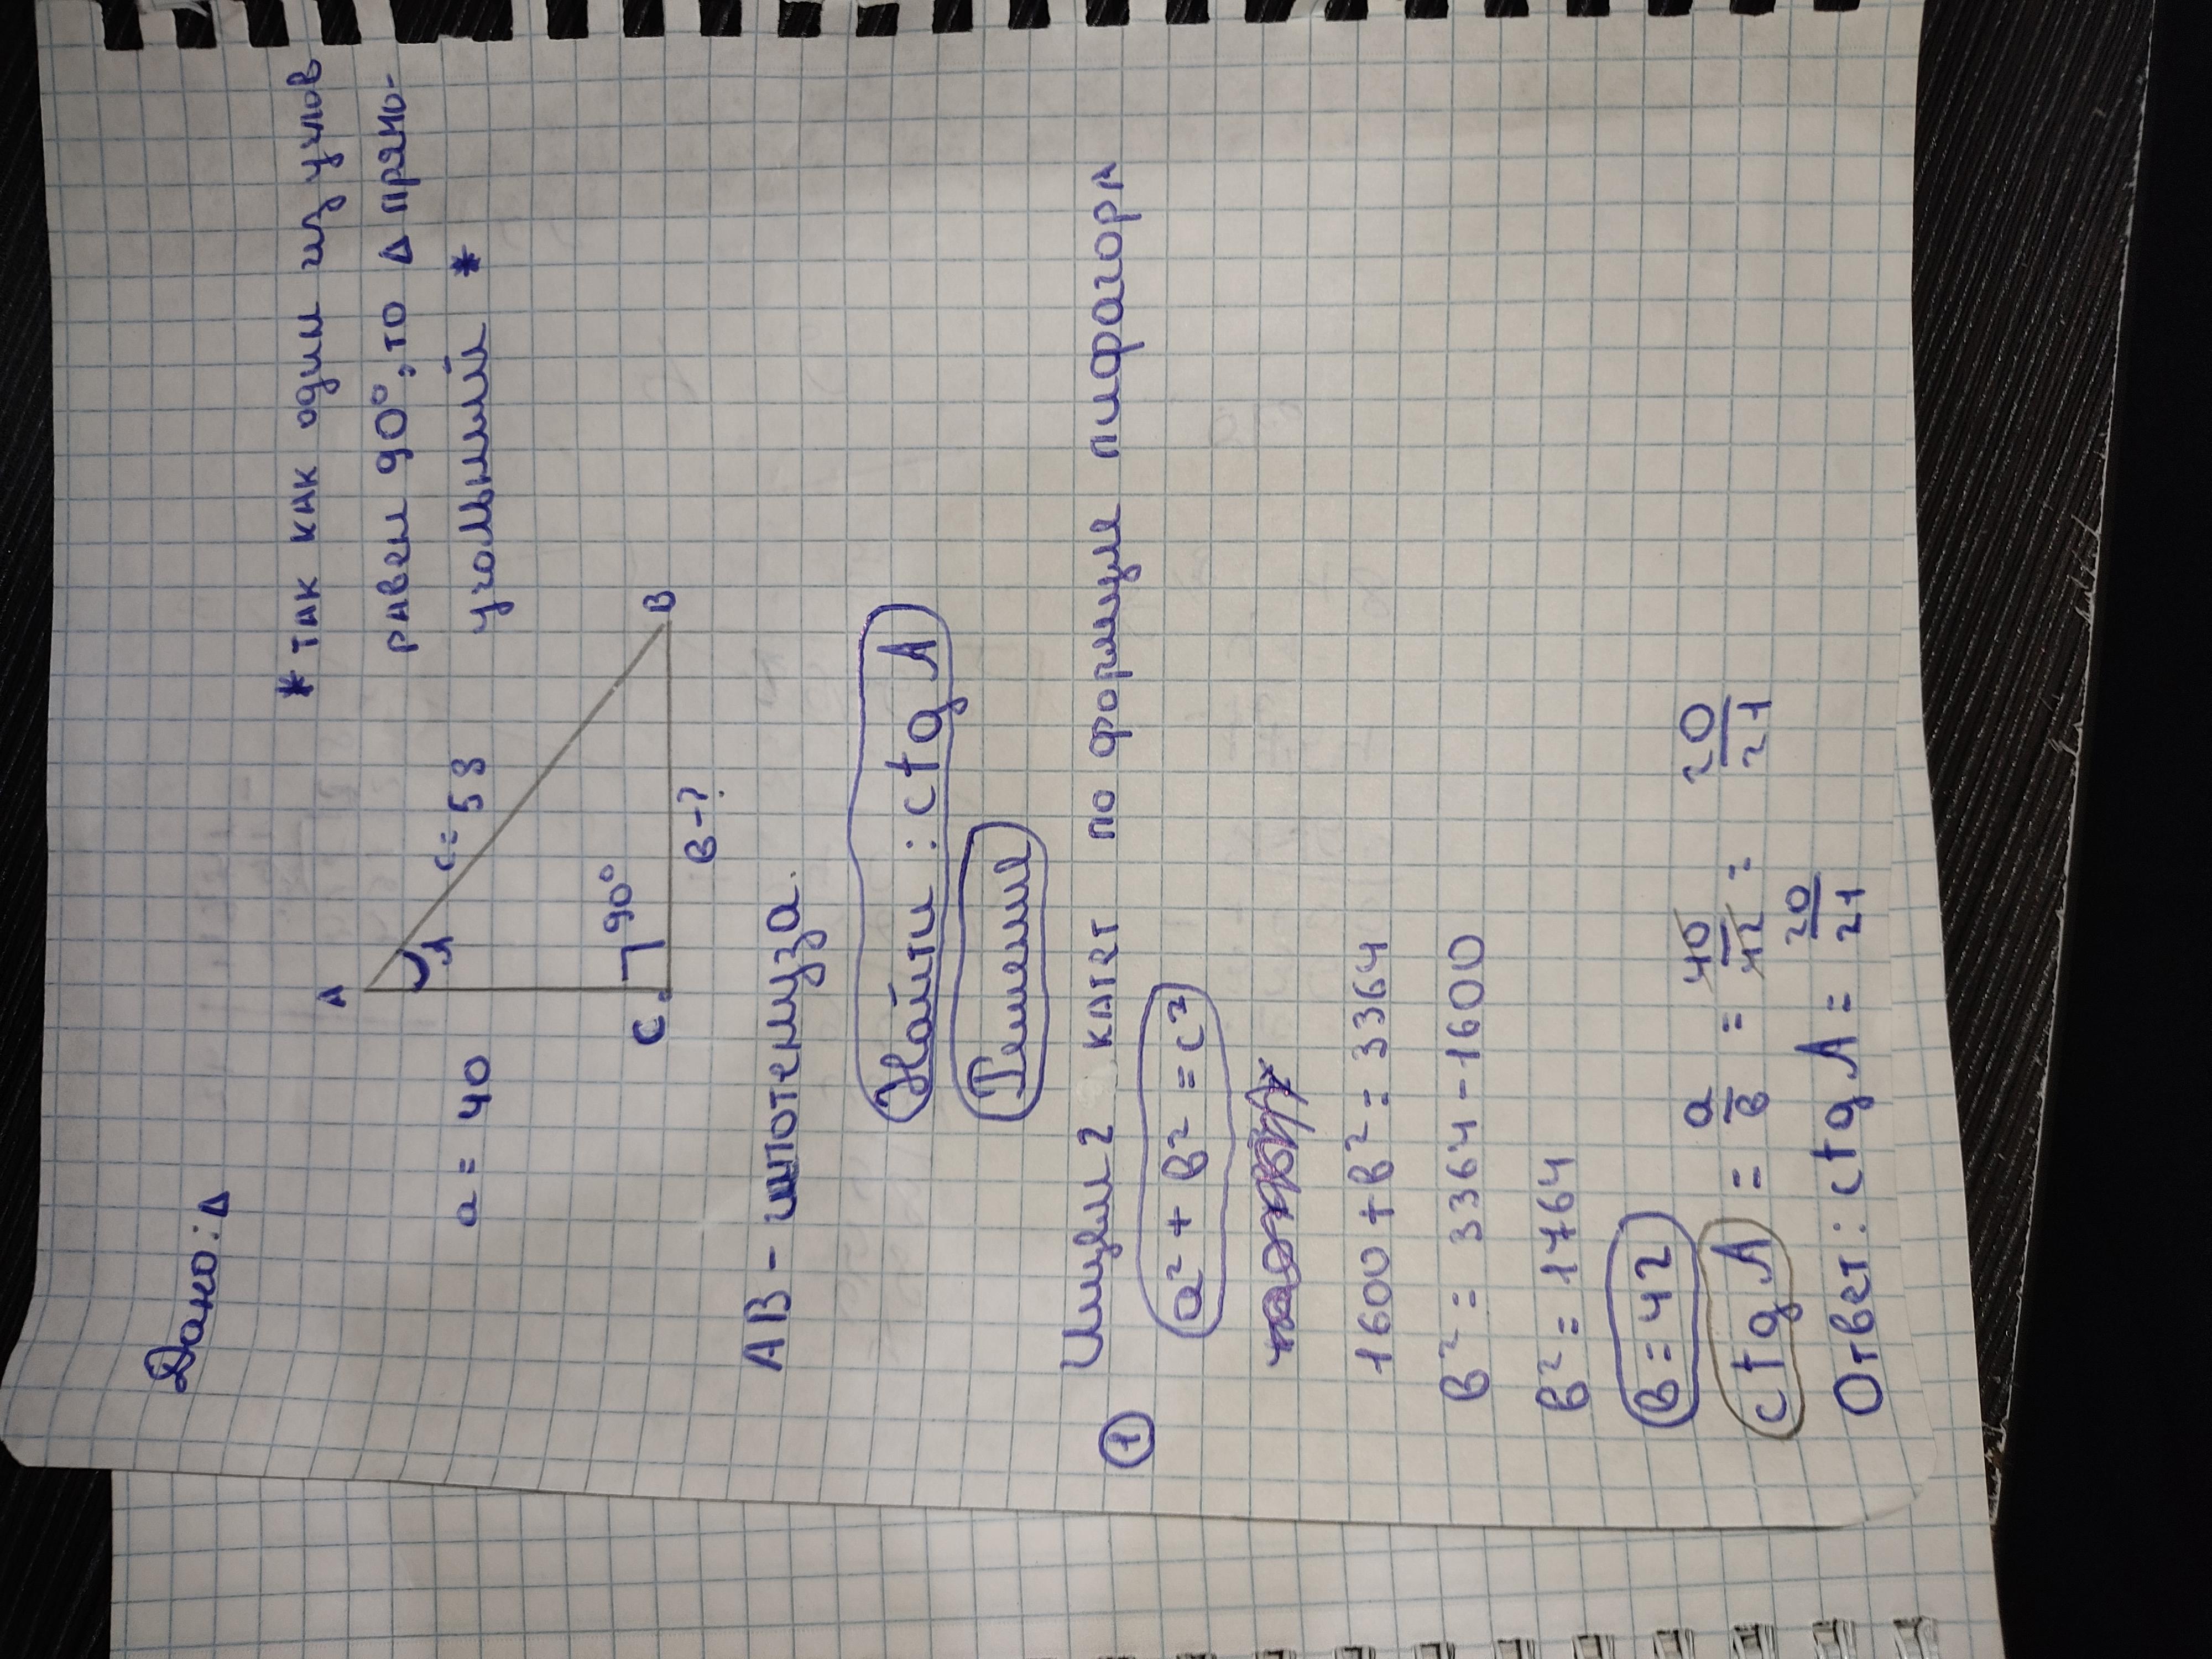 Дано: Δ
* так как один из углов
равен 90°, то Δ прямо-
угольный *
A
a = 40
c = 58
λ
C
90°
B
в - ?
AB - гипотенуза.
Найти : ctg λ
Решение
① Ищем 2 катет по формуле пифагора
a² + в² = c²
1600 + в² = 3364
в² = 3364 - 1600
в² = 1764
в = 42
ctg λ = a/в = 40/42 = 20/21
Ответ : ctg λ = 20/21